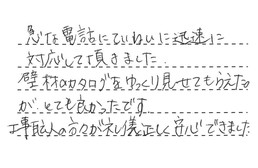 急な電話にていねいに迅速に
対応して頂きました.
壁材のカタログをゆっくり見せてもらえたの
が、とても良かったです.
工事職人の方々が礼儀正しく安心できました